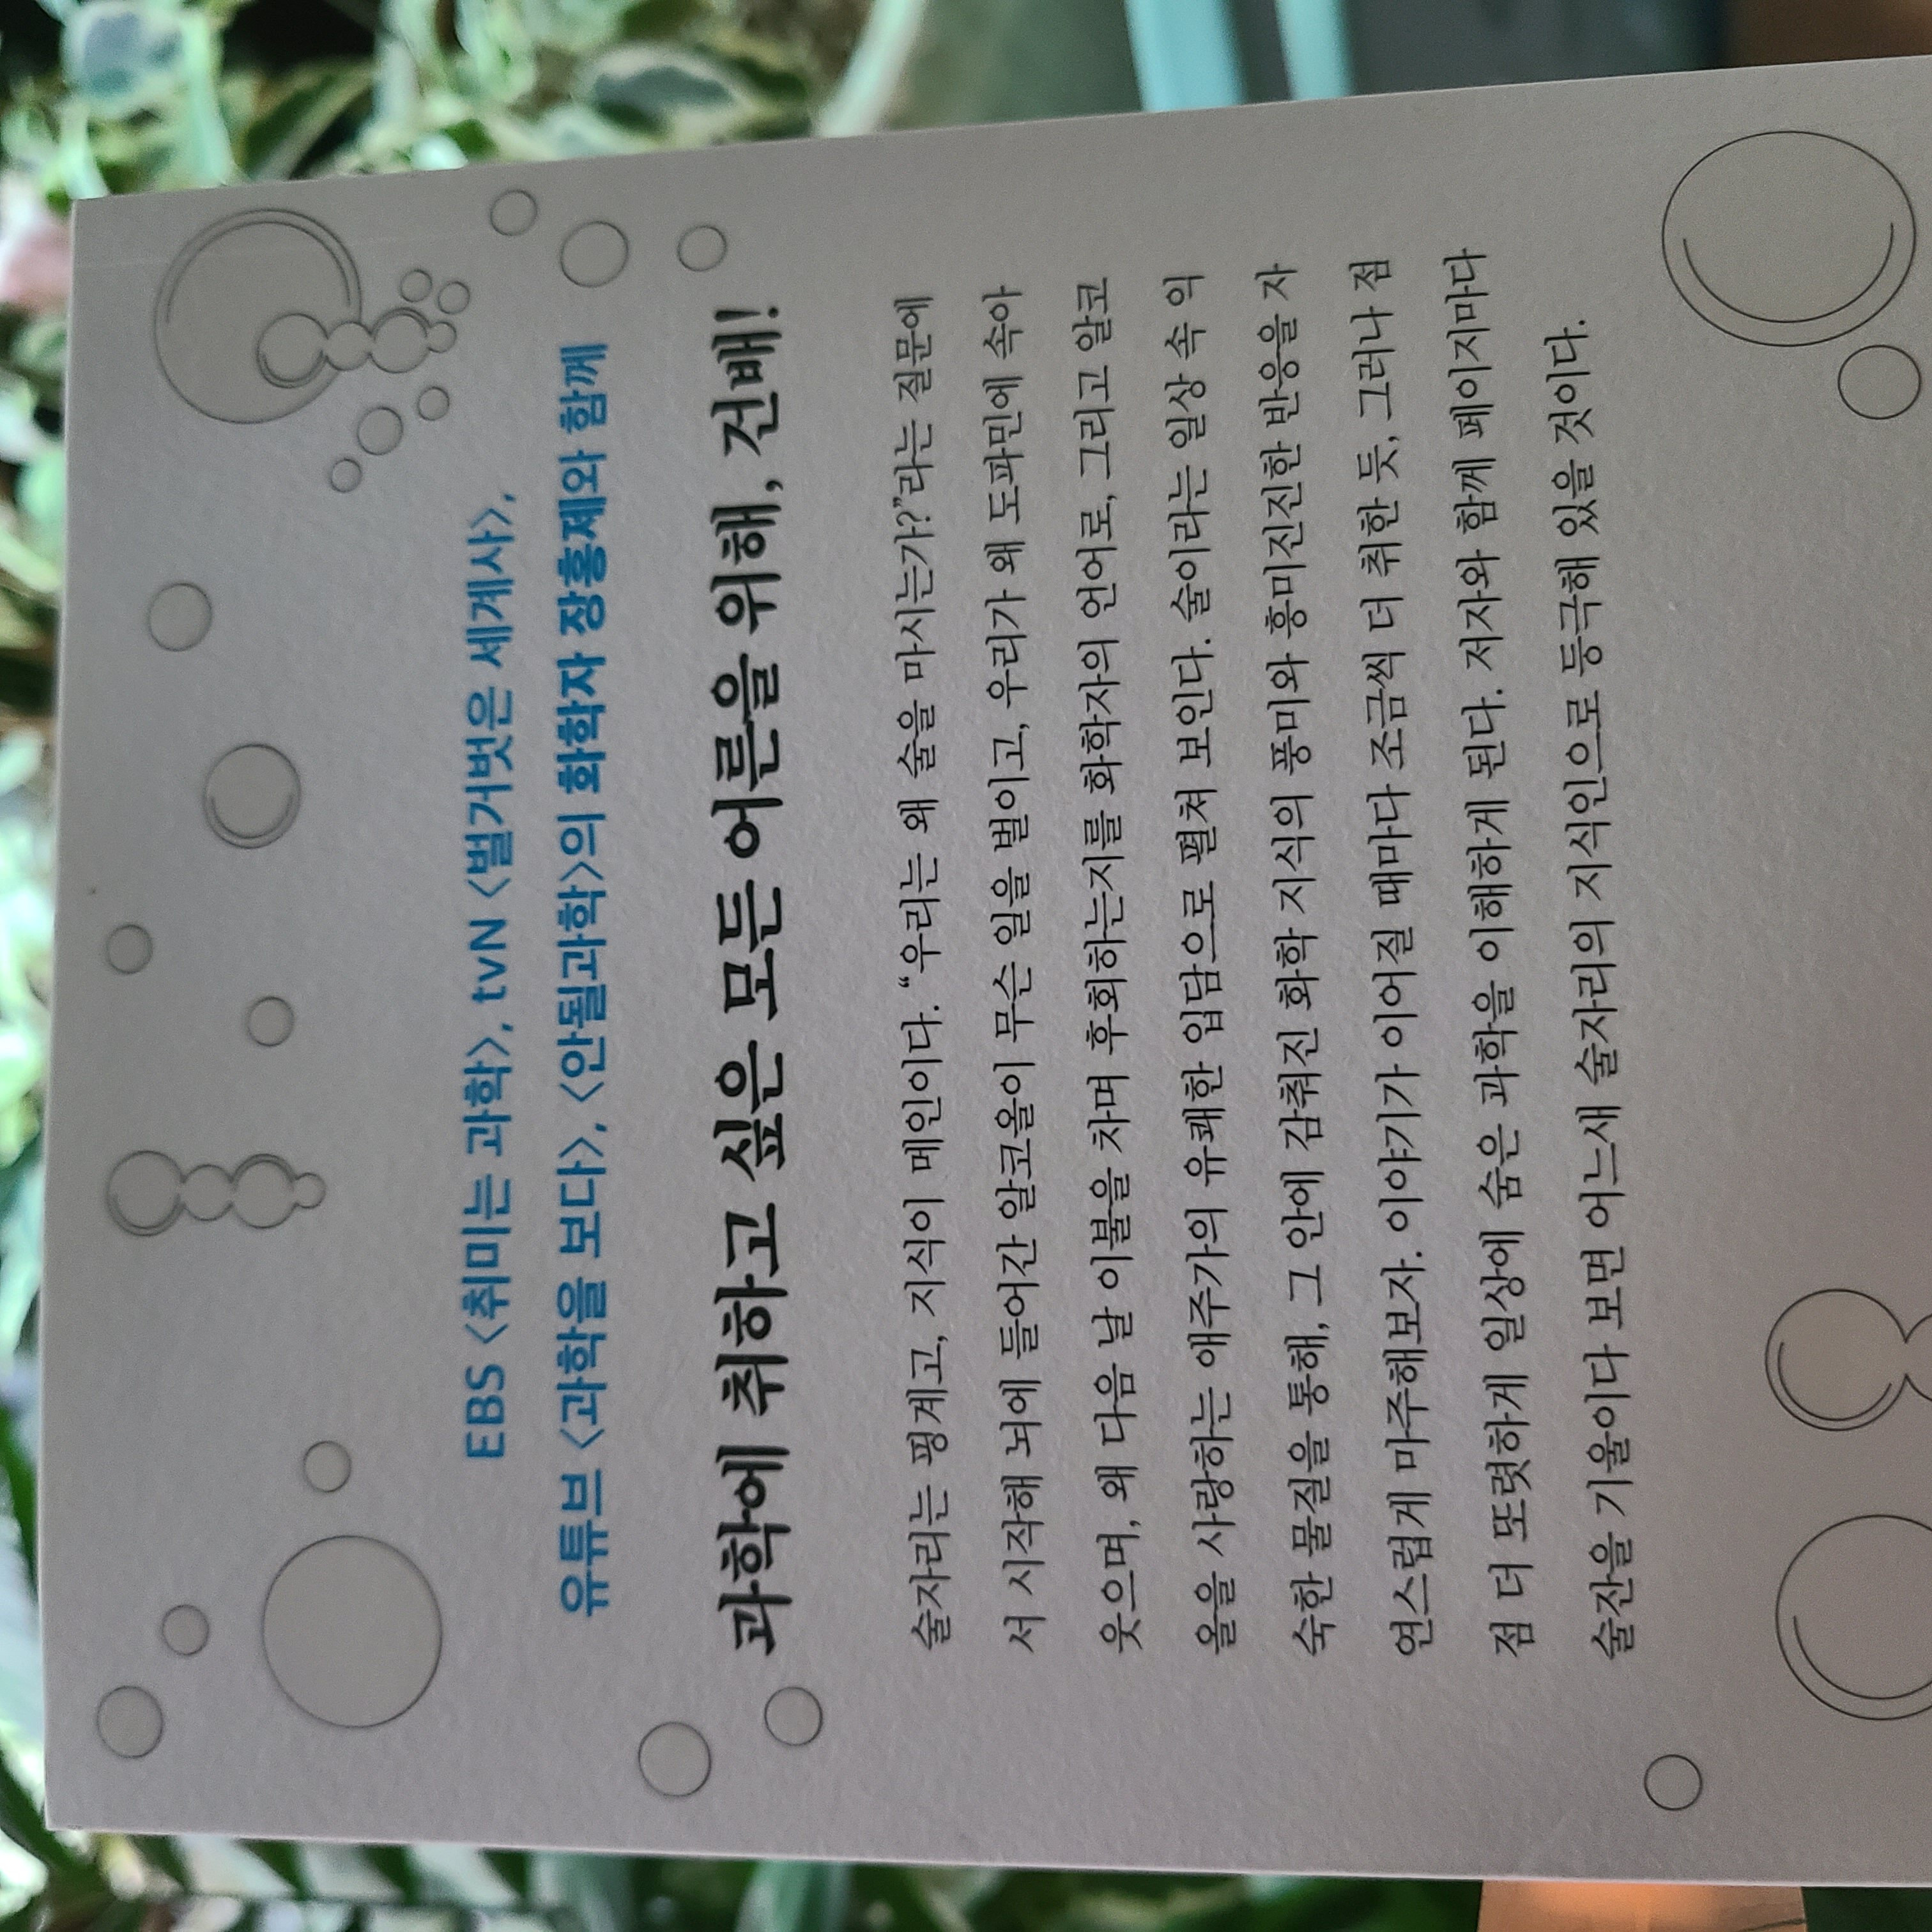 EBS <취미는 과학>, tvN <벌거벗은 세계사>,
유튜브 <과학을 보다>, <안될과학>의 화학자 장홍제와 함께
과학에 취하고 싶은 모든 어른을 위해, 건배!
술자리는 핑계고, 지식이 메인이다. “우리는 왜 술을 마시는가?”라는 질문에
서 시작해 뇌에 들어간 알코올이 무슨 일을 벌이고, 우리가 왜 도파민에 속아
웃으며, 왜 다음 날 이불을 차며 후회하는지를 화학자의 언어로, 그리고 알코
올을 사랑하는 애주가의 유쾌한 입담으로 펼쳐 보인다. 술이라는 일상 속 익
숙한 물질을 통해, 그 안에 감춰진 화학 지식의 풍미와 흥미진진한 반응을 자
연스럽게 마주해보자. 이야기가 이어질 때마다 조금씩 더 취한 듯, 그러나 점
점 더 또렷하게 일상에 숨은 과학을 이해하게 된다. 저자와 함께 페이지마다
술잔을 기울이다 보면 어느새 술자리의 지식인으로 등극해 있을 것이다.